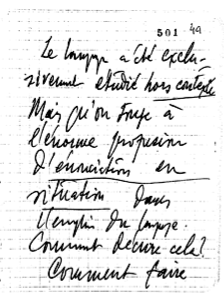 501 49
Le langage a été exclu-
sivement étudié hors contexte
Mais qu'on songe à
l'énorme profusion
d'énonciation en
situation dans
l'emploi du langage.
Comment décrire cela?
Comment faire